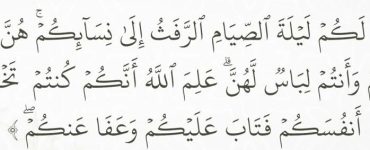 لَكُمْ لَيْلَةَ ٱلصِّيَامِ ٱلرَّفَثُ إِلَىٰ نِسَآئِكُمْ ۚ هُنَّ
وَأَنتُمْ لِبَاسٌ لَّهُنَّ ۗ عَلِمَ ٱللَّهُ أَنَّكُمْ كُنتُمْ
أَنفُسَكُمْ فَتَابَ عَلَيْكُمْ وَعَفَا عَنكُمْ ۖ